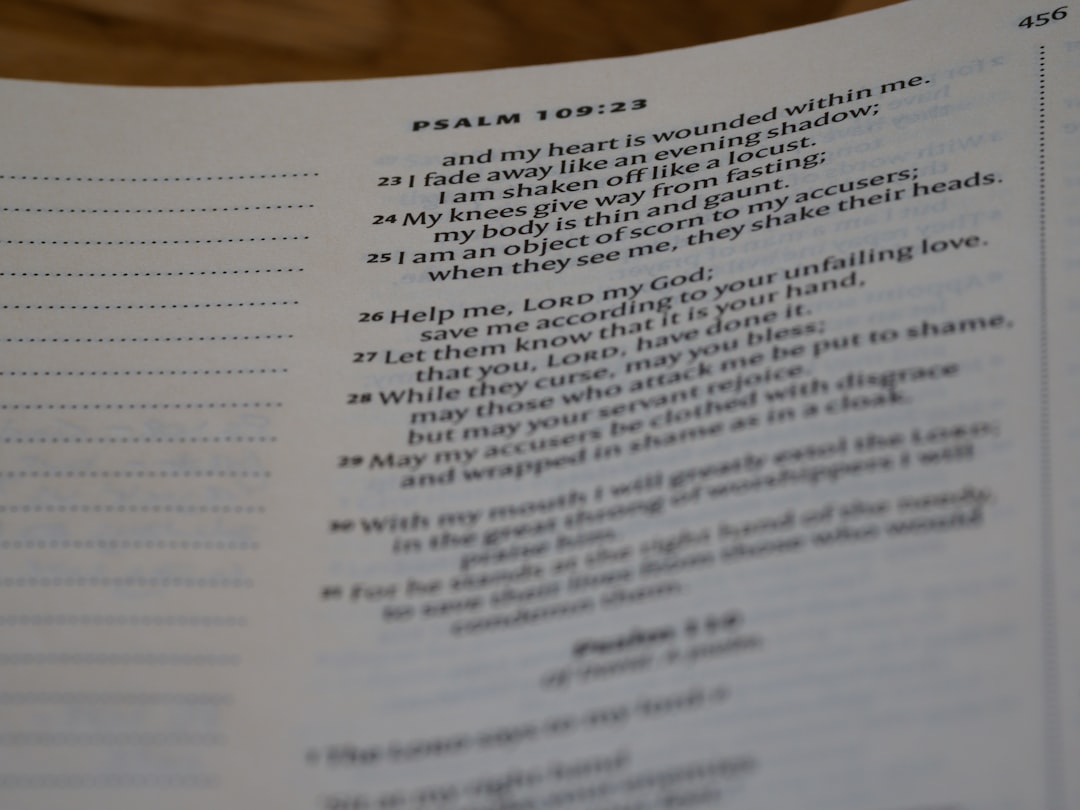 456
PSALM 109:23
and my heart is wounded within me.
23 I fade away like an evening shadow;
I am shaken off like a locust.
24 My knees give way from fasting;
my body is thin and gaunt.
25 I am an object of scorn to my accusers;
when they see me, they shake their heads.
26 Help me, LORD my God;
save me according to your unfailing love.
27 Let them know that it is your hand,
that you, LORD, have done it.
28 While they curse, may you bless;
may those who attack me be put to shame,
but may your servant rejoice.
29 May my accusers be clothed with disgrace
and wrapped in shame as in a cloak.
30 With my mouth I will greatly extol the LORD;
in the great throng of worshippers I will
praise him.
31 For he stands at the right hand of the needy,
to save their lives from those who would
condemn them.
Psalm 110
Of David. A psalm.
The LORD says to my lord